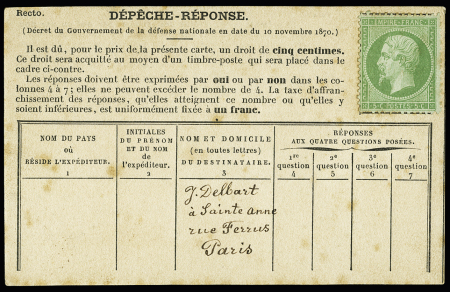 Recto.
DÉPÊCHE-RÉPONSE.
(Décret du Gouvernement de la défense nationale en date du 10 novembre 1870.)
Il est dû, pour le prix de la présente carte, un droit de cinq centimes.
Ce droit sera acquitté au moyen d'un timbre-poste qui sera placé dans le
cadre ci-contre.
Les réponses doivent être exprimées par oui ou par non dans les co-
lonnes 4 à 7; elles ne peuvent excéder le nombre de 4. La taxe d'affran-
chissement des réponses, qu'elles atteignent ce nombre ou qu'elles y
soient inférieures, est uniformément fixée à un franc.
EMPIRE FRANC
5 C POSTES 5 C
NOM DU PAYS
où
RÉSIDE L'EXPÉDITEUR.
1
INITIALES
DU PRÉNOM
ET DU NOM
de
l'expéditeur.
2
NOM ET DOMICILE
(en toutes lettres)
DU DESTINATAIRE.
3
RÉPONSES
AUX QUATRE QUESTIONS POSÉES.
1re
question
4
2e
question
5
3e
question
6
4e
question
7
J. Delbart
à Sainte Anne
rue Ferrus
Paris